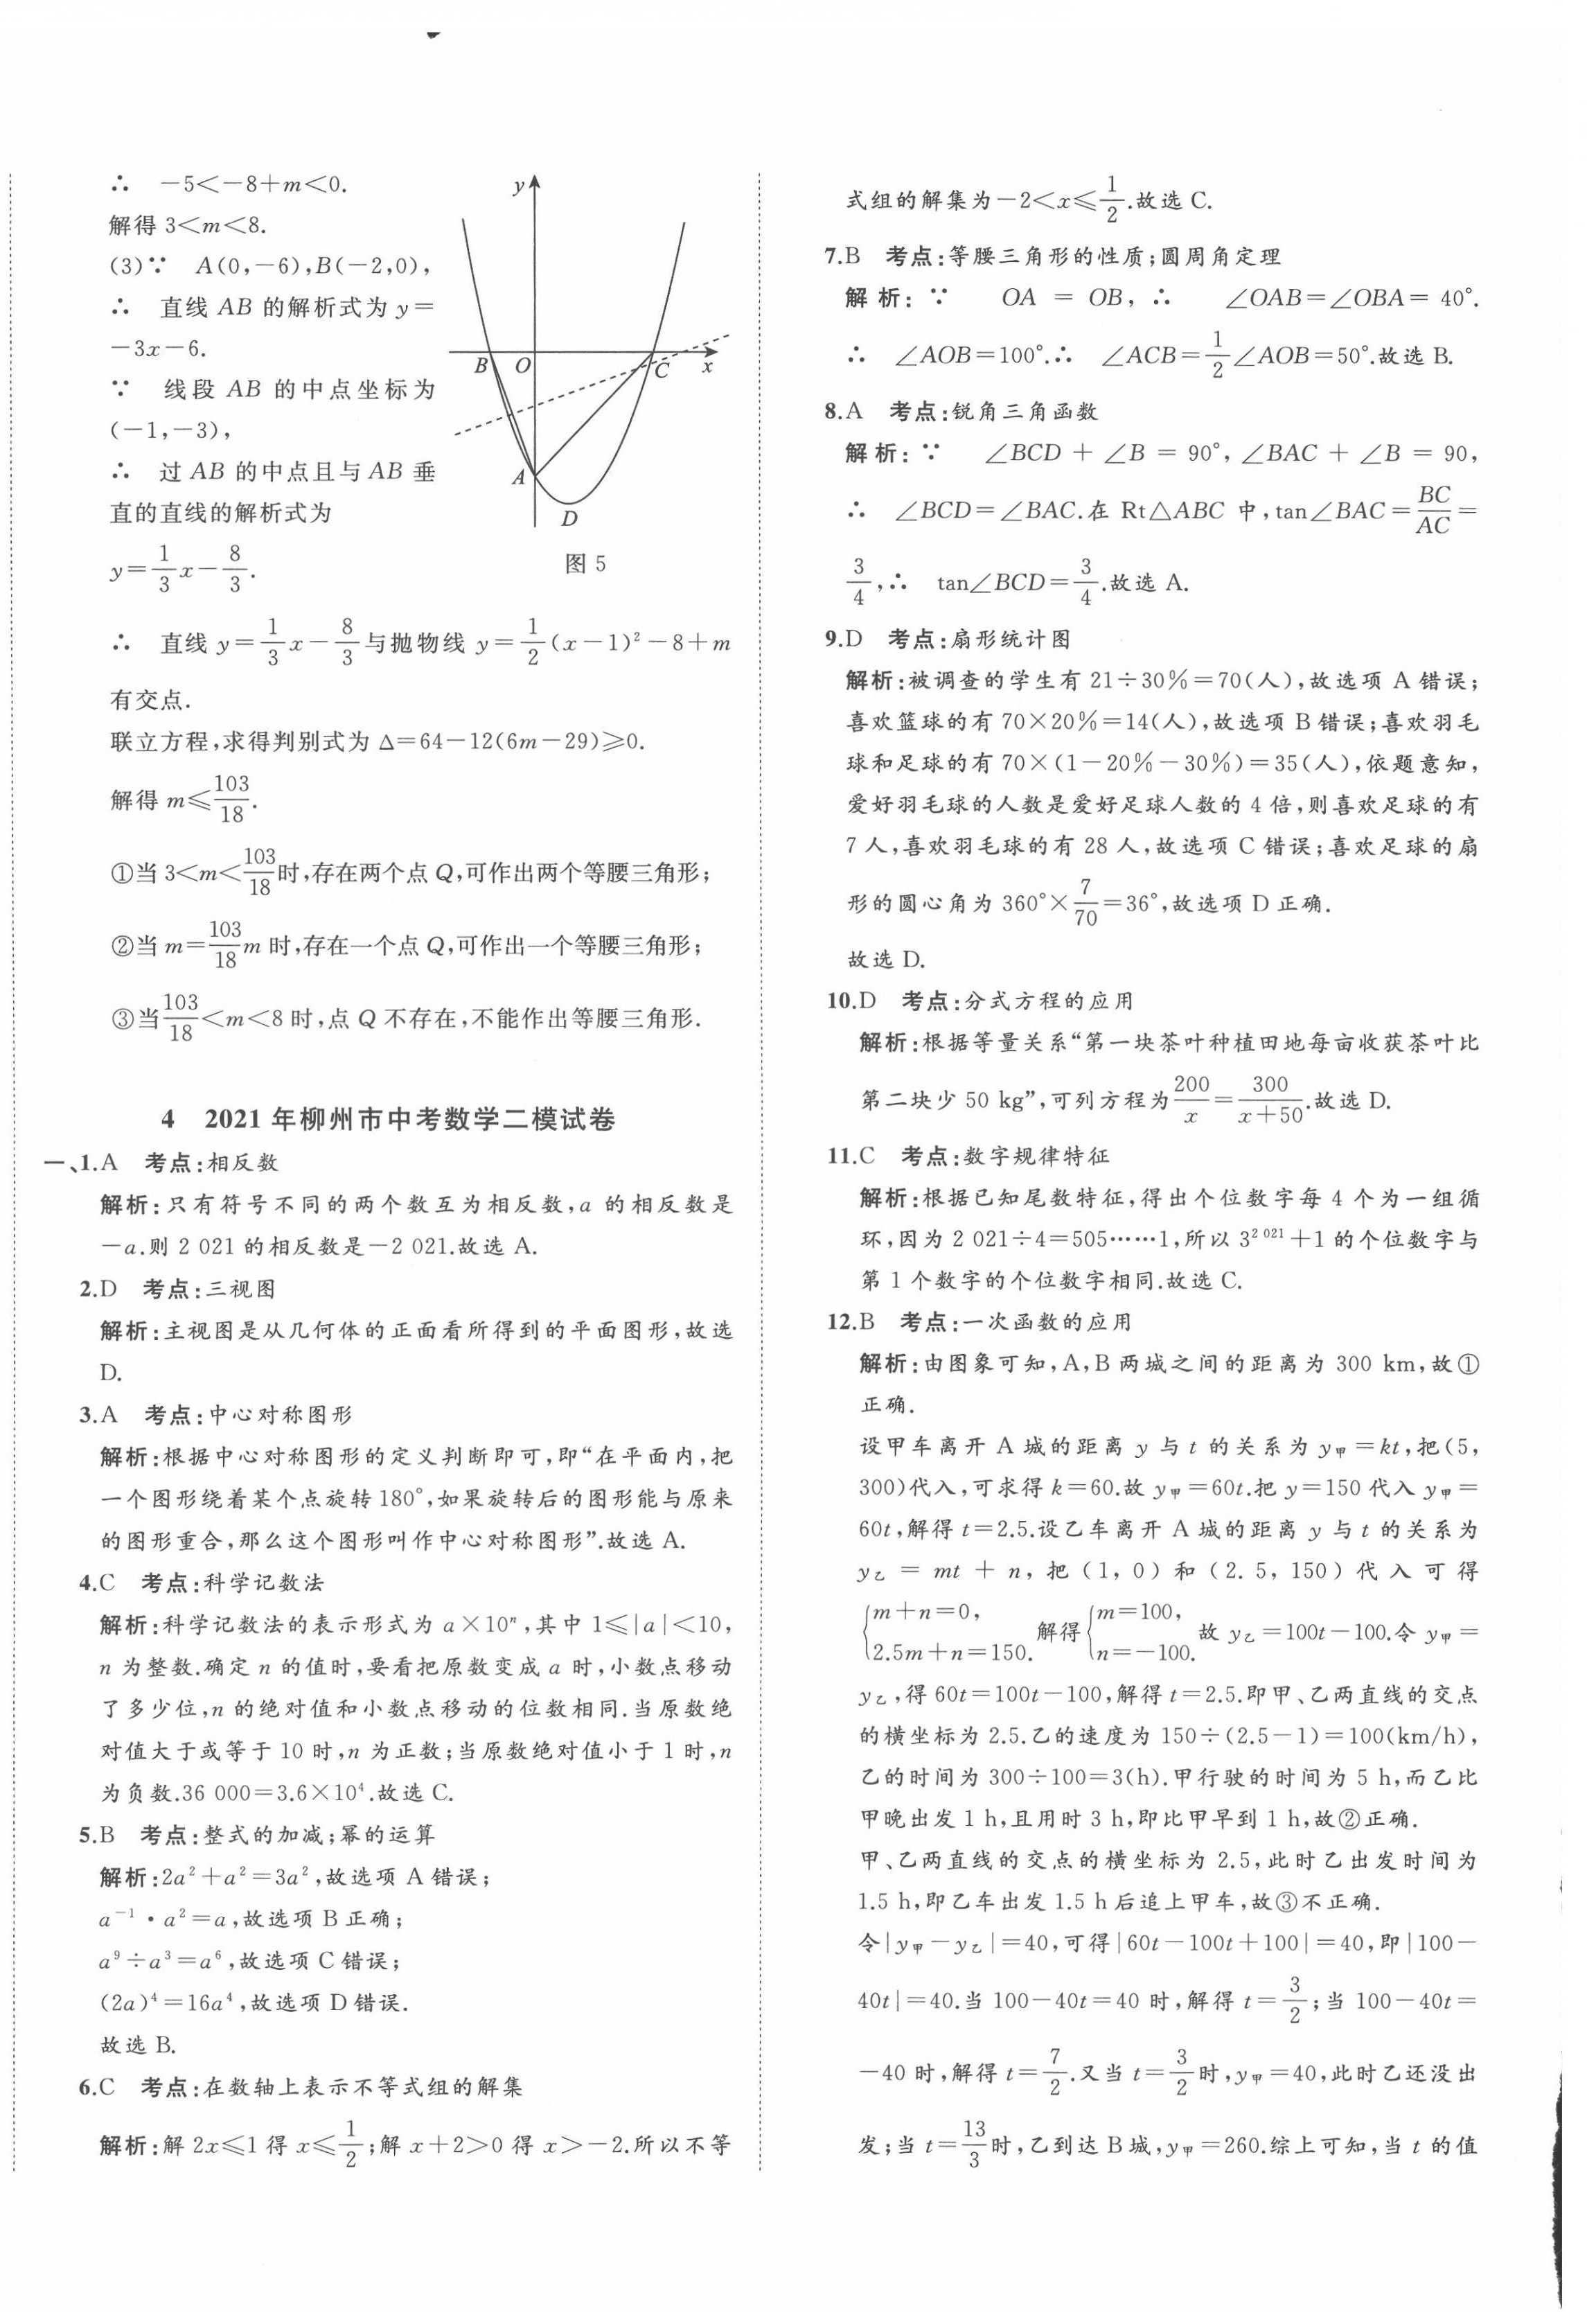 ∴　－5＜－8＋m＜0.
解得 3＜m＜8.
(3)∵　A(0,－6),B(－2,0),
∴　直线 AB 的解析式为 y＝
－3x－6.
∵　线段 AB 的中点坐标为
(－1,－3),
∴　过 AB 的中点且与 AB 垂
直的直线的解析式为
y＝1/3 x－8/3.
y
B O C x
A
D
图 5
∴　直线 y＝1/3 x－8/3 与抛物线 y＝1/2 (x－1)²－8＋m
有交点.
联立方程,求得判别式为 Δ＝64－12(6m－29)≥0.
解得 m≤103/18.
①当 3＜m＜103/18时,存在两个点 Q,可作出两个等腰三角形;
②当 m＝103/18 m 时,存在一个点 Q,可作出一个等腰三角形;
③当103/18＜m＜8 时,点 Q 不存在,不能作出等腰三角形.
4　2021 年柳州市中考数学二模试卷
一、1.A　考点:相反数
解析:只有符号不同的两个数互为相反数,a 的相反数是
－a.则 2 021 的相反数是－2 021.故选 A.
2.D　考点:三视图
解析:主视图是从几何体的正面看所得到的平面图形,故选
D.
3.A　考点:中心对称图形
解析:根据中心对称图形的定义判断即可,即“在平面内,把
一个图形绕着某个点旋转 180°,如果旋转后的图形能与原来
的图形重合,那么这个图形叫作中心对称图形”.故选 A.
4.C　考点:科学记数法
解析:科学记数法的表示形式为 a×10ⁿ,其中 1≤|a|＜10,
n 为整数.确定 n 的值时,要看把原数变成 a 时,小数点移动
了多少位,n 的绝对值和小数点移动的位数相同.当原数绝
对值大于或等于 10 时,n 为正数;当原数绝对值小于 1 时,n
为负数.36 000＝3.6×10⁴.故选 C.
5.B　考点:整式的加减;幂的运算
解析:2a²＋a²＝3a²,故选项 A 错误;
a⁻¹·a²＝a,故选项 B 正确;
a⁹÷a³＝a⁶,故选项 C 错误;
(2a)⁴＝16a⁴,故选项 D 错误.
故选 B.
6.C　考点:在数轴上表示不等式组的解集
解析:解 2x≤1 得 x≤1/2;解 x＋2＞0 得 x＞－2.所以不等
式组的解集为－2＜x≤1/2.故选 C.
7.B　考点:等腰三角形的性质;圆周角定理
解析:∵　OA ＝ OB,∴　∠OAB＝∠OBA＝ 40°.
∴　∠AOB＝100°.∴　∠ACB＝1/2∠AOB＝50°.故选 B.
8.A　考点:锐角三角函数
解析:∵　∠BCD ＋ ∠B ＝ 90°,∠BAC ＋ ∠B ＝ 90,
∴　∠BCD＝∠BAC.在 Rt△ABC 中,tan∠BAC＝BC/AC＝
3/4,∴　tan∠BCD＝3/4.故选 A.
9.D　考点:扇形统计图
解析:被调查的学生有 21÷30％＝70(人),故选项 A 错误;
喜欢篮球的有 70×20％＝14(人),故选项 B 错误;喜欢羽毛
球和足球的有 70×(1－20％－30％)＝35(人),依题意知,
爱好羽毛球的人数是爱好足球人数的 4 倍,则喜欢足球的有
7 人,喜欢羽毛球的有 28 人,故选项 C 错误;喜欢足球的扇
形的圆心角为 360°×7/70＝36°,故选项 D 正确.
故选 D.
10.D　考点:分式方程的应用
解析:根据等量关系“第一块茶叶种植田地每亩收获茶叶比
第二块少 50 kg”,可列方程为200/x＝300/(x＋50).故选 D.
11.C　考点:数字规律特征
解析:根据已知尾数特征,得出个位数字每 4 个为一组循
环,因为 2 021÷4＝505……1,所以 3²⁰²¹＋1 的个位数字与
第 1 个数字的个位数字相同.故选 C.
12.B　考点:一次函数的应用
解析:由图象可知,A,B 两城之间的距离为 300 km,故①
正确.
设甲车离开 A 城的距离 y 与 t 的关系为 y甲＝kt,把(5,
300)代入,可求得 k＝60.故 y甲＝60t.把 y＝150 代入 y甲＝
60t,解得 t＝2.5.设乙车离开 A 城的距离 y 与 t 的关系为
y乙 ＝ mt ＋ n, 把 (1, 0) 和 (2.5, 150) 代入可得
{m＋n＝0, 2.5m＋n＝150. 解得{m＝100, n＝－100. 故 y乙＝100t－100.令 y甲＝
y乙,得 60t＝100t－100,解得 t＝2.5.即甲、乙两直线的交点
的横坐标为 2.5.乙的速度为 150÷(2.5－1)＝100(km/h),
乙的时间为 300÷100＝3(h).甲行驶的时间为 5 h,而乙比
甲晚出发 1 h,且用时 3 h,即比甲早到 1 h,故②正确.
甲、乙两直线的交点的横坐标为 2.5,此时乙出发时间为
1.5 h,即乙车出发 1.5 h 后追上甲车,故③不正确.
令|y甲－y乙|＝40,可得|60t－100t＋100|＝40,即|100－
40t|＝40.当 100－40t＝40 时,解得 t＝3/2;当 100－40t＝
－40 时,解得 t＝7/2.又当 t＝3/2时,y甲＝40,此时乙还没出
发;当 t＝13/3时,乙到达 B 城,y甲＝260.综上可知,当 t 的值